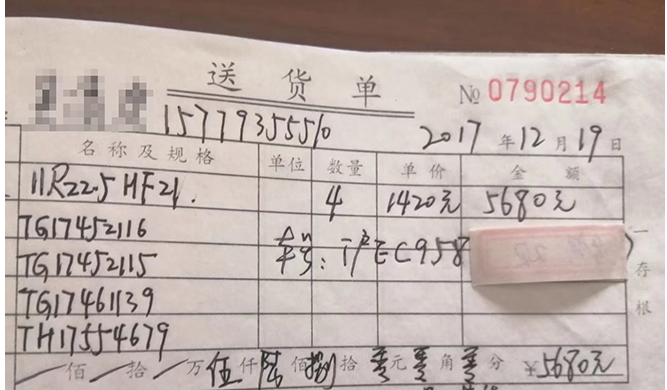 送货单
№ 0790214
15779355510
2017年12月19日
名称及规格 单位 数量 单价 金额
11R22.5 HF21. 4 1420元 5680元
TG17452116
TG17452115 车号: 沪EC958
TG17461139
TH17554679
一存根
佰 拾 万 伍仟 陆佰 捌拾 零元 零角 零分 ¥5680元